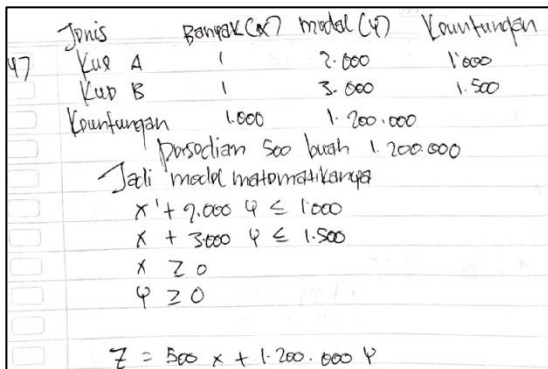 Jenis Banyak (x) modal (y) keuntungan
47 Kue A 1 2.000 1.000
Kue B 1 3.000 1.500
Keuntungan 1.000 1.200.000
persedian 500 buah 1.200.000
Jadi model matematikanya
x + 2.000 y ≤ 1.000
x + 3.000 y ≤ 1.500
x ≥ 0
y ≥ 0
Z = 500 x + 1.200.000 y